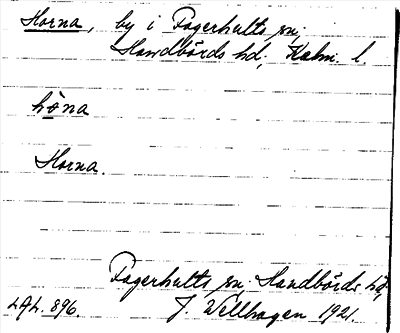 Horna, by i Fagerhults sn,
Handbörds hd, Kalm. l.
hòna
Horna.
Fagerhults sn, Handbörds hd,
LAL. 896. J. Wellhagen 1921.